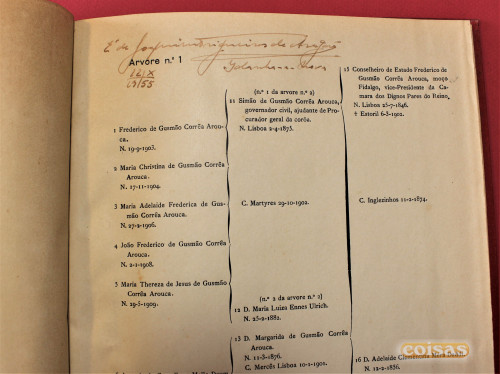 É de Joaquim
Arvore n.º 1
12/X
1955
1 Frederico de Gusmão Corrêa Arou-
ca.
N. 19-9-1903.
2 Maria Christina de Gusmão Corrêa
Arouca.
N. 17-11-1904.
3 Maria Adelaide Frederica de Gus-
mão Corrêa Arouca.
N. 27-2-1906.
4 João Frederico de Gusmão Corrêa
Arouca.
N. 2-1-1908.
5 Maria Thereza de Jesus de Gusmão
Corrêa Arouca.
N. 29-5-1909.
(n.º 1 da arvore n.º 2)
11 Simão de Gusmão Corrêa Arouca,
governador civil, ajudante de Pro-
curador geral da corôa.
N. Lisboa 2-4-1875.
C. Martyres 29-10-1902.
(n.º 2 da arvore n.º 2)
12 D. Maria Luiza Ennes Ulrich.
N. 25-2-1882.
13 D. Margarida de Gusmão Corrêa
Arouca.
N. 11-3-1876.
C. Mercês Lisboa 10-2-1901.
15 Conselheiro de Estado Frederico de
Gusmão Corrêa Arouca, moço
Fidalgo, vice-Presidente da Ca-
mara dos Dignos Pares do Reino.
N. Lisboa 25-7-1846.
† Estoril 6-3-1902.
C. Inglezinhos 11-2-1874.
16 D. Adelaide
N. 12-2-1856.
coisas